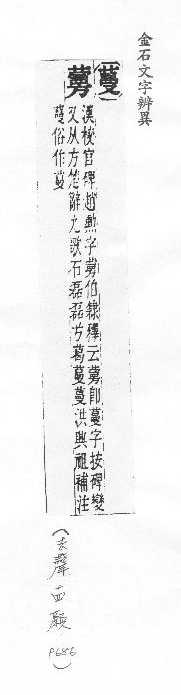 金石文字辨異
〔蔓〕
漢校官碑趙勲字伯隸釋云即蔓字按碑變
又从方楚辭九歌石磊磊兮葛蔓蔓洪興祖補注
蔓俗作
(去聲 願 P656)